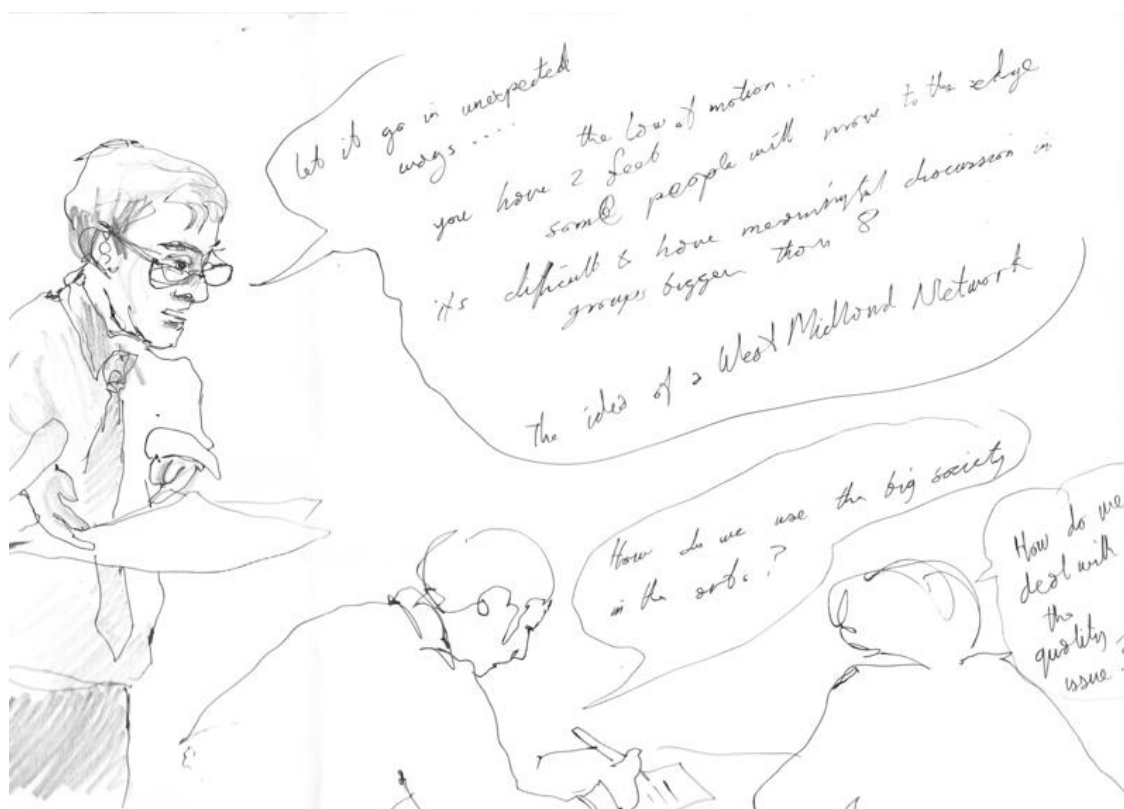 let it go in unexpected
ways....
the law of motion...
you have 2 feet
some people will move to the edge
its difficult to have meaningful discussion in
groups bigger than 8
The idea of a West Midland Network
How do we use the big society
in the arts?
How do we
deal with
the
quality
issue?